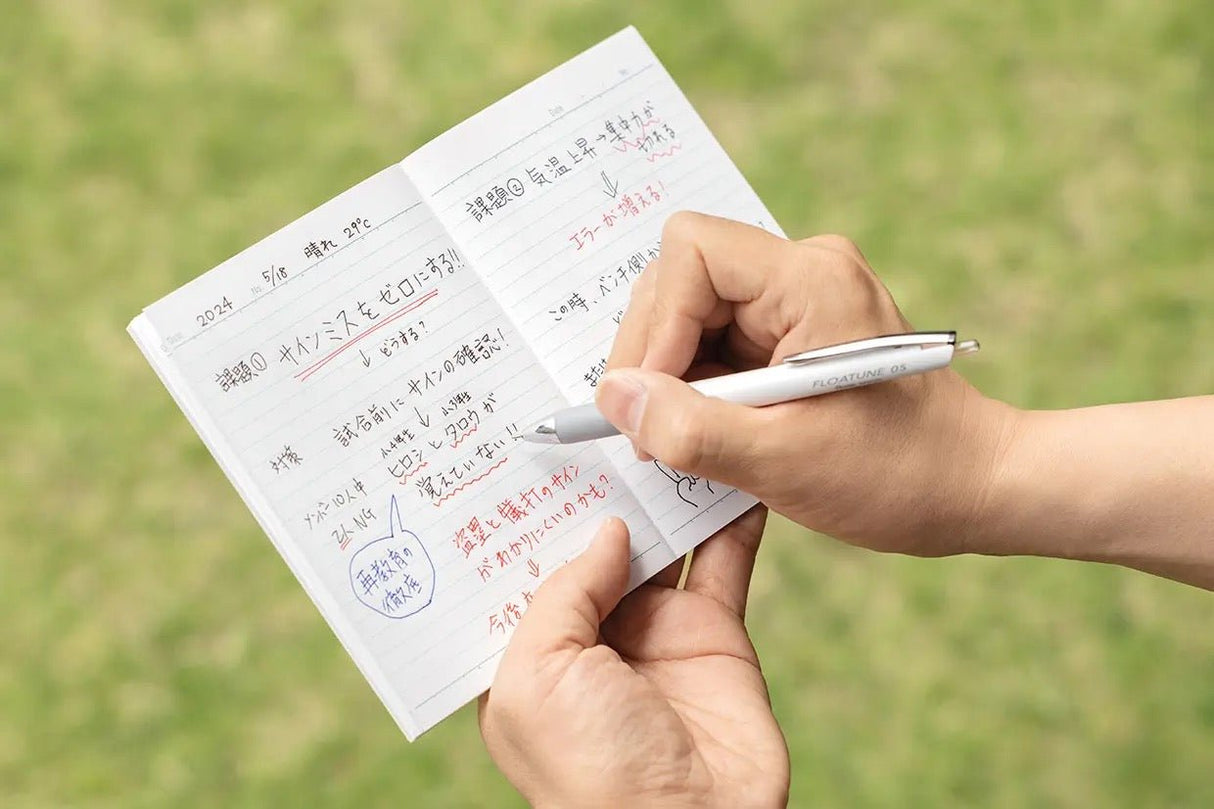 2024 5/18 晴れ 29℃
課題① サインミスをゼロにする!!
↓ どうする?
対策 試合前にサインの確認!
小4年生 ↓ 小3年生
ヒロシとタロウが
覚えていない!!
メンバー10人中
2人NG
再教育の
徹底
盗塁と犠打のサイン
がわかりにくいのかも?
↓
今後
Date No.
課題② 気温上昇→集中力が
切れる
↓
エラーが増える!
この時、ベンチ側か
または
FLOATUNE 05